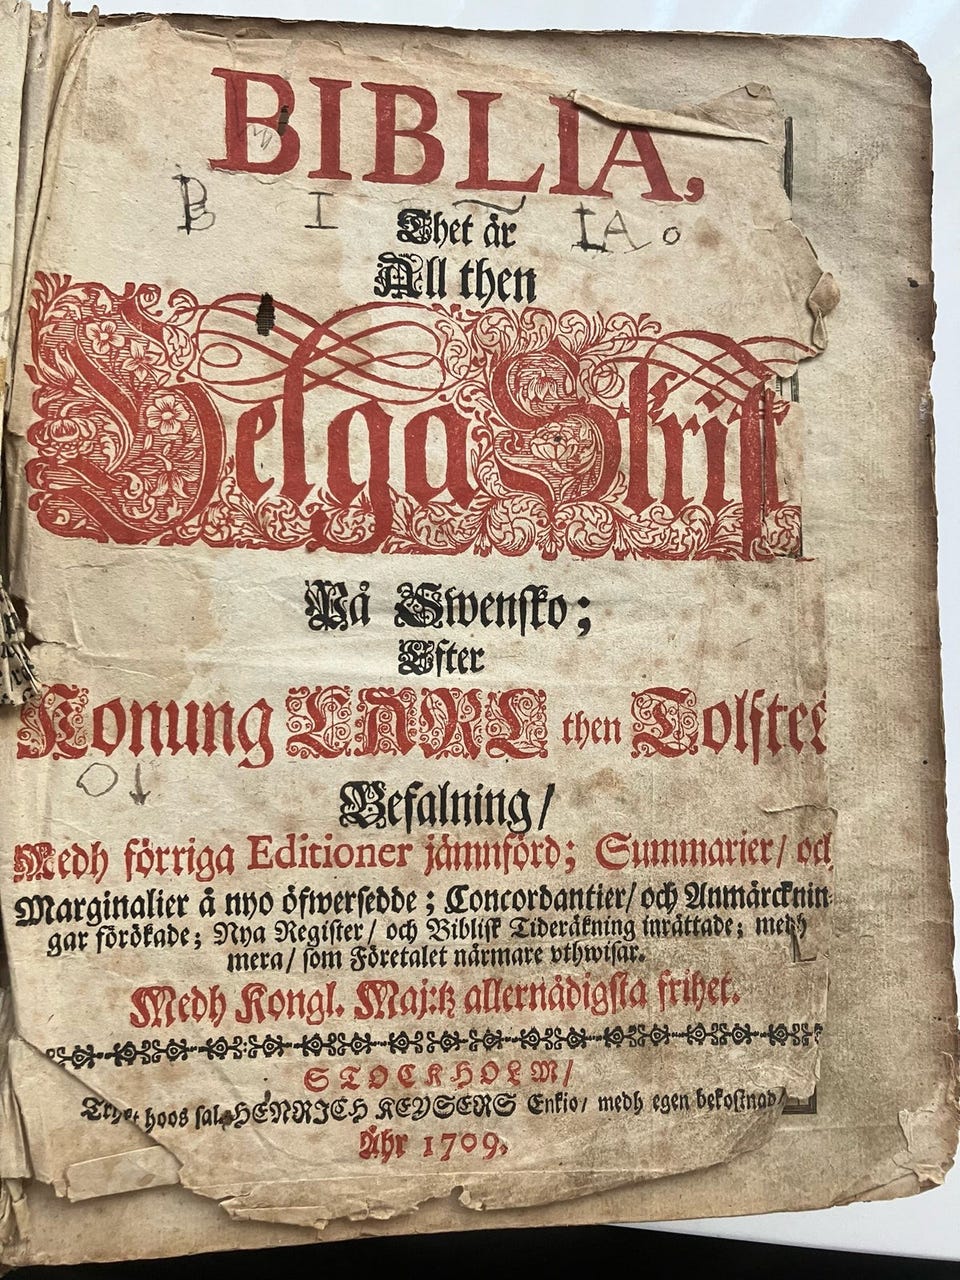 BIBLIA,
B I IA.
Thet är
All then
Helga Skrift
På Swensko;
Efter
Konung CARL then Tolftes
Befalning/
Medh förriga Editioner jämnförd; Summarier/ och
Marginalier å nyo öfwersedde; Concordantier/ och Anmärcknin-
gar förökade; Nya Register/ och Biblisk Tideräkning inrättade; medh
mera/ som Företalet närmare vthwisar.
Medh Kongl. Maj:tz allernådigsta frihet.
STOCKHOLM/
hoos sal. HENRICH KEYSERS Enkio/ medh egen bekostnad/
Åhr 1709.